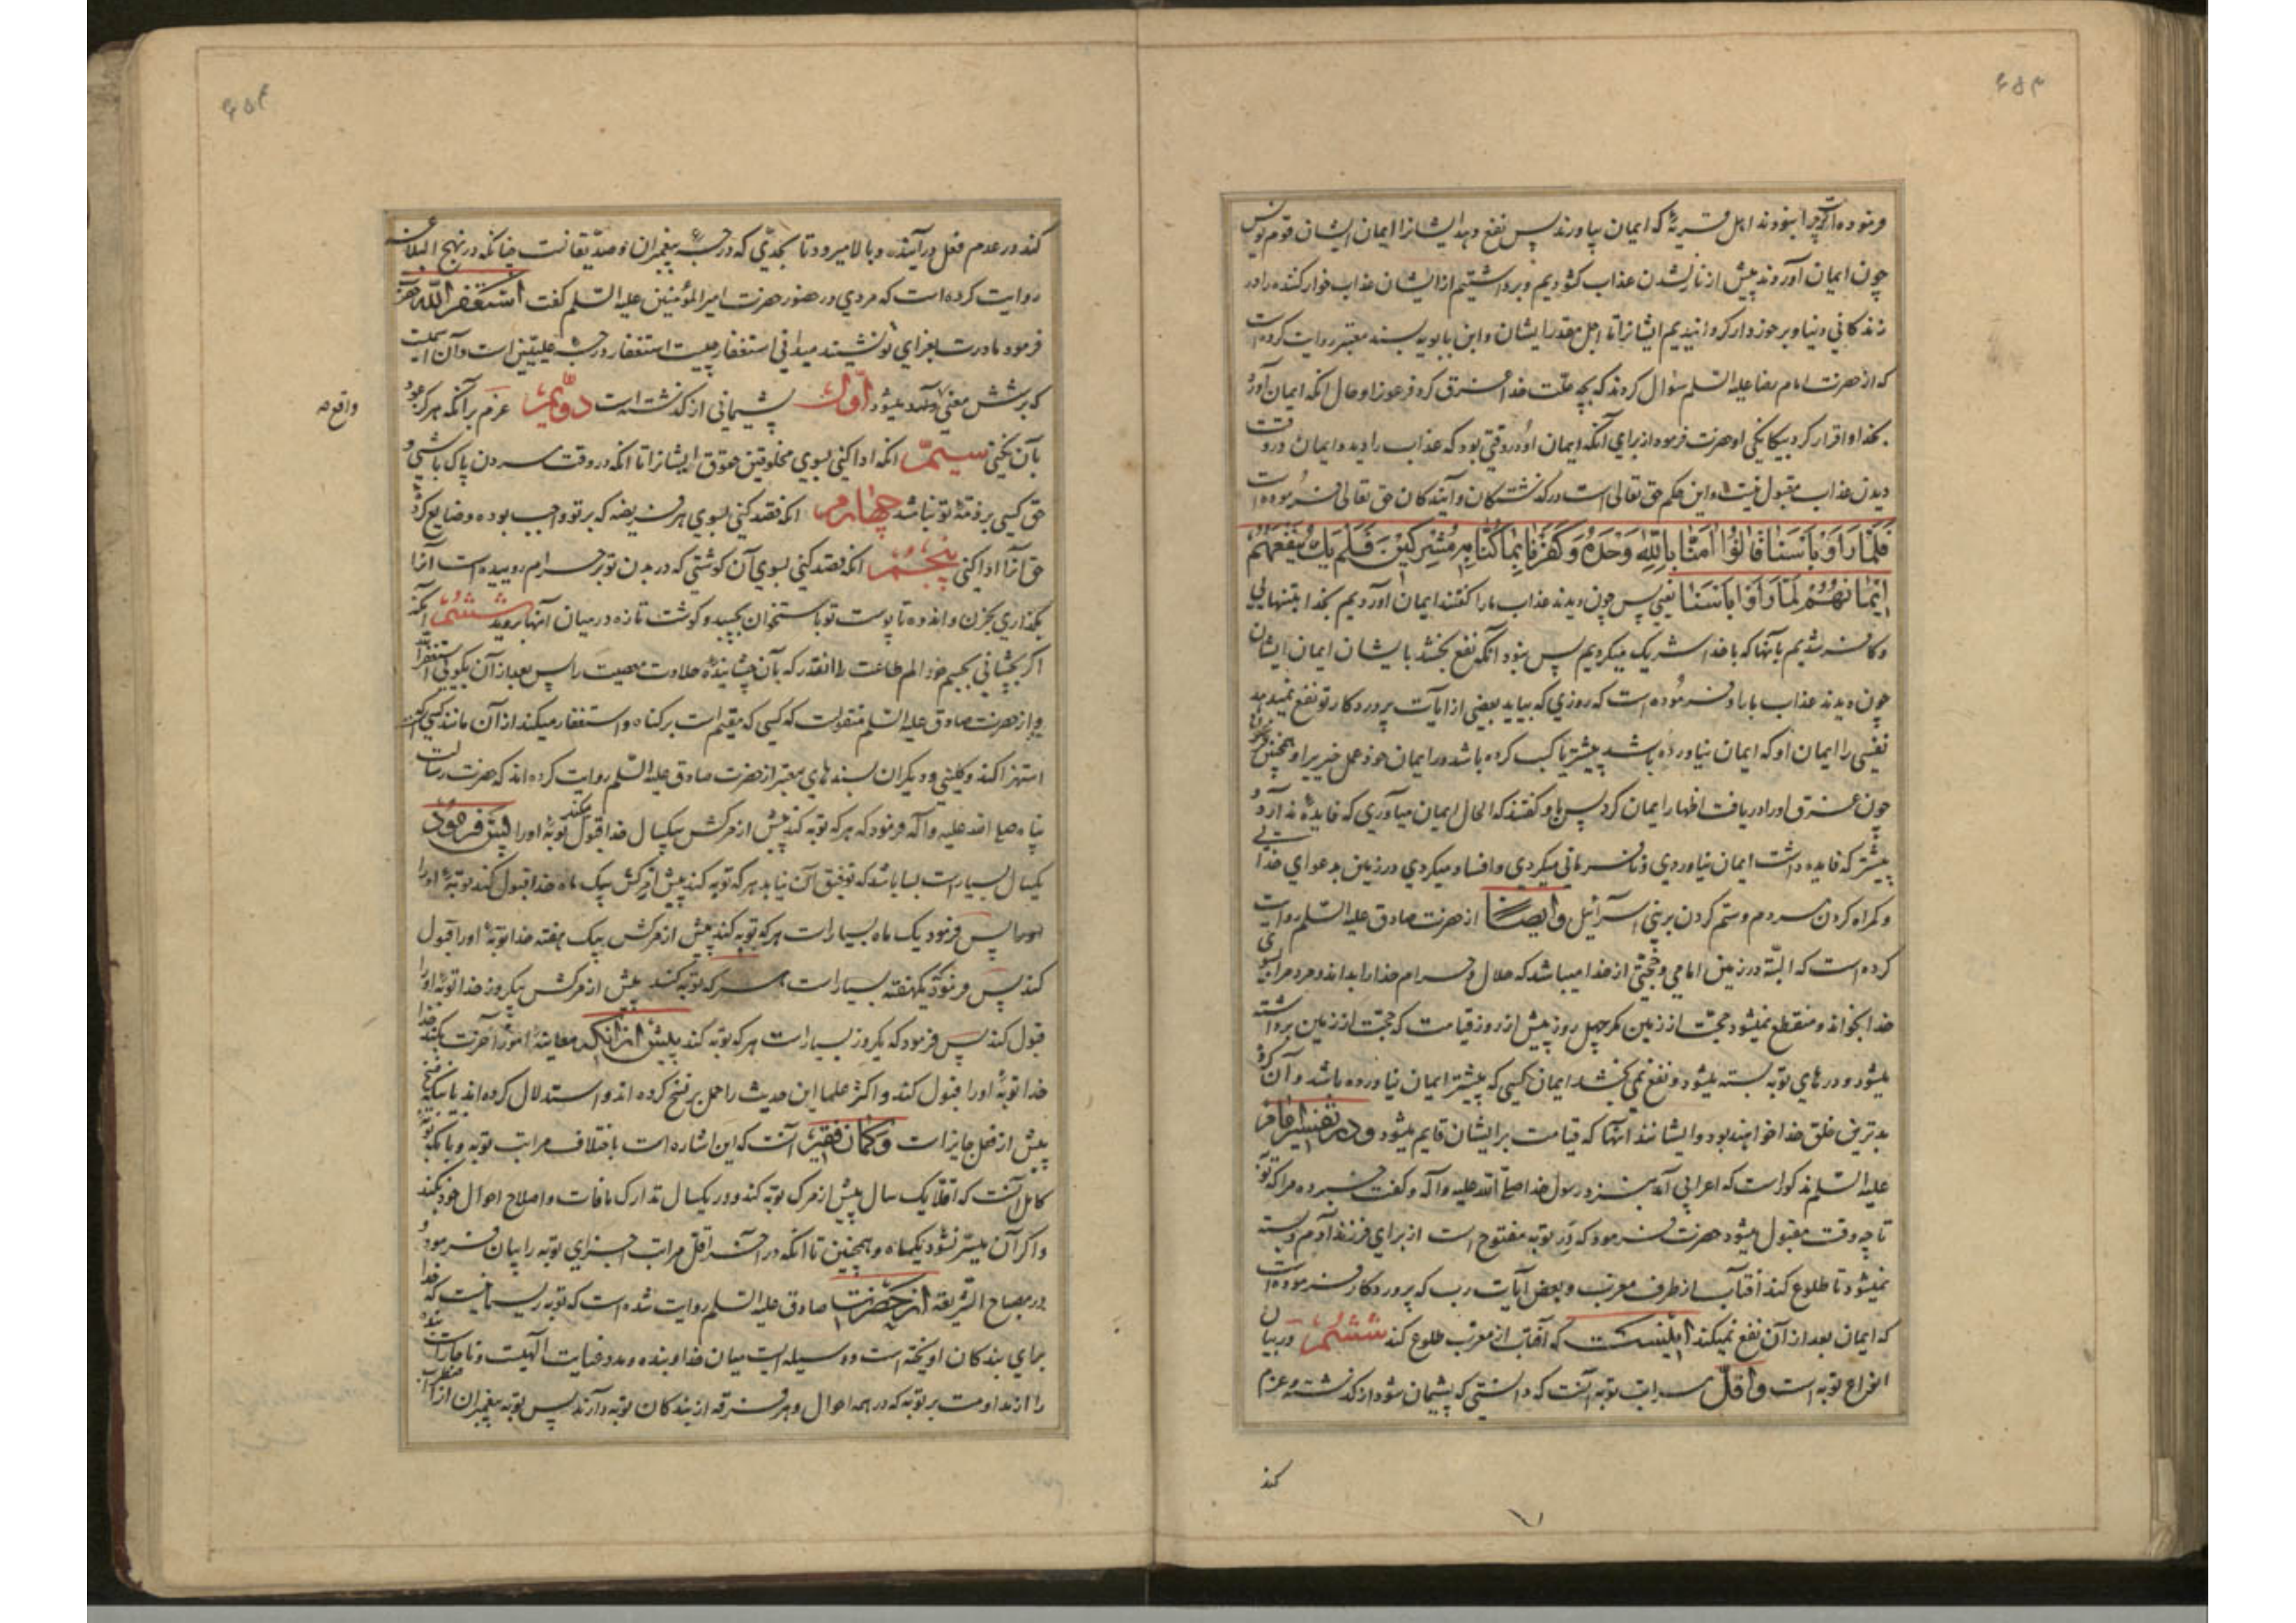 ۴۵۳
فرموده است که چرا نبودند اهل قریهٔ که ایمان بیاورند پس نفع دهد ایشانرا ایمان ایشان قوم یونس
چون ایمان آوردند پیش از نازلشدن عذاب کشودیم و برداشتیم از ایشان عذاب خوار کننده را در
زندکانی دنیا و برخوردار کردانیدیم ایشانرا تا اجل مقدر ایشان و ابن بابویه بسند معتبر روایت کرده است
که از حضرت امام رضا علیه السلم سؤال کردند که بچه علت خدا غرق کرد فرعونرا و حال آنکه ایمان آورد
بخدا و اقرار کرد بیکانکی او حضرت فرمود از برای آنکه ایمان او در وقتی بود که عذاب را دید و ایمان در وقت
دیدن عذاب مقبول نیست و این حکم حق تعالی است در کذشتکان و آیندکان حق تعالی فرموده است
فَلَمّا رَاَوْ بَاْسَنا قالُوْا اٰمَنّا بِاللّٰهِ وَحْدَهُ وَكَفَرْنا بِما كُنّا بِهِ مُشْرِكينَ فَلَمْ يَكُ يَنْفَعُهُمْ
اِيْمانُهُمْ لَمّا رَاَوْا بَاْسَنا یعنی پس چون دیدند عذاب ما را کفتند ایمان آوردیم بخدا بتنهایی
و کافر شدیم بآنها که با خدا شریک میکردیم پس نبود آنکه نفع بخشد بایشان ایمان ایشان
چون دیدند عذاب ما را و فرموده است که روزی که بیاید بعضی از آیات پروردکار تو نفع نمیدهد
نفسی را ایمان او که ایمان نیاورده باشد پیشتر یا کسب کرده باشد در ایمان خود عمل خیریرا و همچنین فرعون
چون غرق او را دریافت اظهار ایمان کرد پس باو کفتند که الحال ایمان میآوری که فایده ندارد و
پیشتر که فایده داشت ایمان نیاوردی و نافرمانی میکردی و افساد میکردی در زمین بدعوای خدایی
و کمراه کردن مردم و ستم کردن بر بنی اسرائیل وایضا از حضرت صادق علیه السلم روایت
کرده است که البته در زمین امامی و حجتی از خدا میباشد که حلال و حرام خدا را بداند و مردمرا بسوی
خدا بخواند و منقطع نمیشود حجت از زمین مکر چهل روز پیش از روز قیامت که حجت از زمین برداشته
میشود و درهای توبه بسته میشود و نفع نمی بخشد ایمان کسی که پیشتر ایمان نیاورده باشد و آن کروه
بدترین خلق خدا خواهند بود و ایشانند آنها که قیامت بر ایشان قایم میشود و در تفسیر امام
علیه السلم مذکور است که اعرابی آمد بنزد رسول خدا صلی الله علیه وآله و کفت خبر ده مرا که توبه
تا چه وقت مقبول میشود حضرت فرمود که در توبه مفتوح است از برای فرزند آدم و بسته
نمیشود تا طلوع کند آفتاب از طرف مغرب و بعض آیات رب که پروردکار فرموده است
که ایمان بعد از آن نفع نمیکند اینست که آفتاب از مغرب طلوع کند ششم در بیان
انواع توبه است و اقل مراتب توبه آنست که دانستی که پشیمان شود از کذشته و عزم
کند
۴۵۴
کند در عدم فعل در آینده و بالا میرود تا بحدی که درجه پیغمبران و صدیقانست چنانکه در نهج البلاغه
روایت کرده است که مردی در حضور حضرت امیر المؤمنین علیه السلم کفت استغفر الله حضرت
فرمود مادرت بعزای تو نشیند میدانی استغفار چیست استغفار درجه علیین است و آن اسمیست
که بر شش معنی واقع میشود اول پشیمانی از کذشته است دویم عزم بر آنکه هرکز عود
واقع
بآن نکنی سیم آنکه ادا کنی بسوی مخلوقین حقوق ایشانرا تا آنکه در وقت مردن پاک باشی و
حق کسی بر ذمه تو نباشد چهارم آنکه قصد کنی بسوی هر فریضه که بر تو واجب بوده و ضایع کرده
حق آنرا ادا کنی پنجم آنکه قصد کنی بسوی آن کوشتی که در بدن تو بر حرام روییده است آنرا
بکذاری بحزن و اندوه تا پوست تو باستخوان بچسبد و کوشت تازه در میان آنها بروید ششم آنکه
بچشانی بجسم خود الم طاعت را آنقدر که بآن چشانیدهٔ حلاوت معصیت را پس بعد از آن بکویی استغفر الله
و از حضرت صادق علیه السلم منقولست که کسی که مقیم است بر کناه و استغفار میکند از آن مانند کسی است که
استهزا کند و کلینی و دیکران بسندهای معتبر از حضرت صادق علیه السلم روایت کرده اند که حضرت رسالت
پناه صلی الله علیه وآله فرمود که هر که توبه کند پیش از مرکش بیکسال خدا قبول میکند توبهٔ او را پس فرمود
یکسال بسیار است بسا باشد که توفیق آن نیابد هر که توبه کند پیش از مرکش بیک ماه خدا قبول کند توبهٔ او را
پس فرمود یک ماه بسیار است هر که توبه کند پیش از مرکش بیک هفته خدا توبهٔ او را قبول
کند پس فرمود یکهفته بسیار است هر که توبه کند پیش از مرکش بیکروز خدا توبهٔ او را
قبول کند پس فرمود که یکروز بسیار است هر که توبه کند پیش از آنکه معاینهٔ امور آخرت بکند خدا
خدا توبهٔ او را قبول کند و اکثر علما این حدیث را حمل بر نسخ کرده اند و استدلال کرده اند باینکه نسخ
پیش از فعل جایز است و کمان فقیر آنست که این اشاره است باختلاف مراتب توبه و یا آنکه توبه
کامل آنست که اقلا یک سال پیش از مرک توبه کند و در یکسال تدارک مافات و اصلاح احوال خود بکند
و اکر آن میسر نشود یکماه و همچنین تا آنکه در آخر اقل مراتب اجزای توبه را بیان فرمود و
در مصباح الشریعه از حضرت صادق علیه السلم روایت شده است که توبه ریسمانیست که خدا
برای بندکان آویخته است و وسیله ایست میان خدا و بنده و مدد عنایت آلهیست و ناچار است بنده
را از مداومت بر توبه که در همه احوال و هر فرقه از بندکان توبهٔ دارند پس توبهٔ پیغمبران از اضطراب